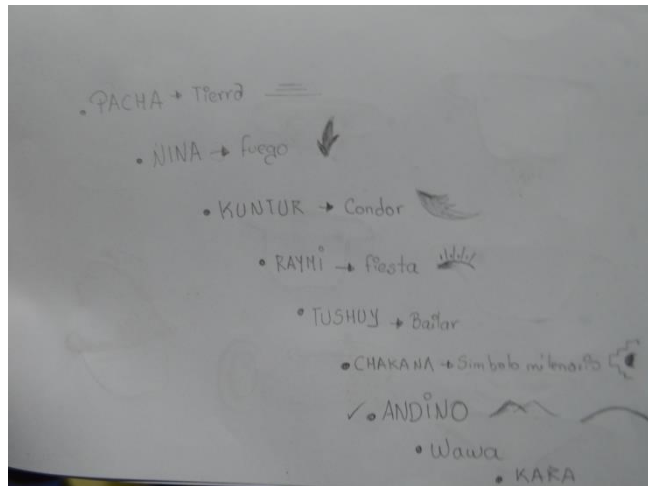 • PACHA → Tierra
• NINA → fuego
• KUNTUR → Condor
• RAYMI → fiesta
• TUSHUY → Bailar
• CHAKANA → Simbolo milenario
✓ • ANDINO
• Wawa
• KARA